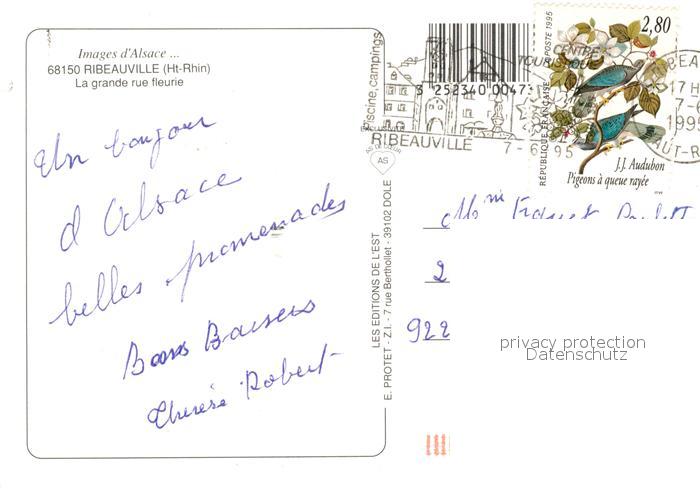 Images d'Alsace ...
68150 RIBEAUVILLE (Ht-Rhin)
La grande rue fleurie
Un bonjour
d'Alsace
belles promenades
Bons Baisers
Thérèse Robert
LES EDITIONS DE L'EST
E. PROTET - Z.I. - 7 rue Berthollet - 39102 DOLE
AS
3 252340 00473
piscine, campings
CENTRE
TOURISTIQUE
RIBEAUVILLE
7-6-95
17H
7-
1995
RÉPUBLIQUE FRANÇAISE POSTE 1995
2,80
J.J. Audubon
Pigeons à queue rayée
Mme
2
922
privacy protection
Datenschutz